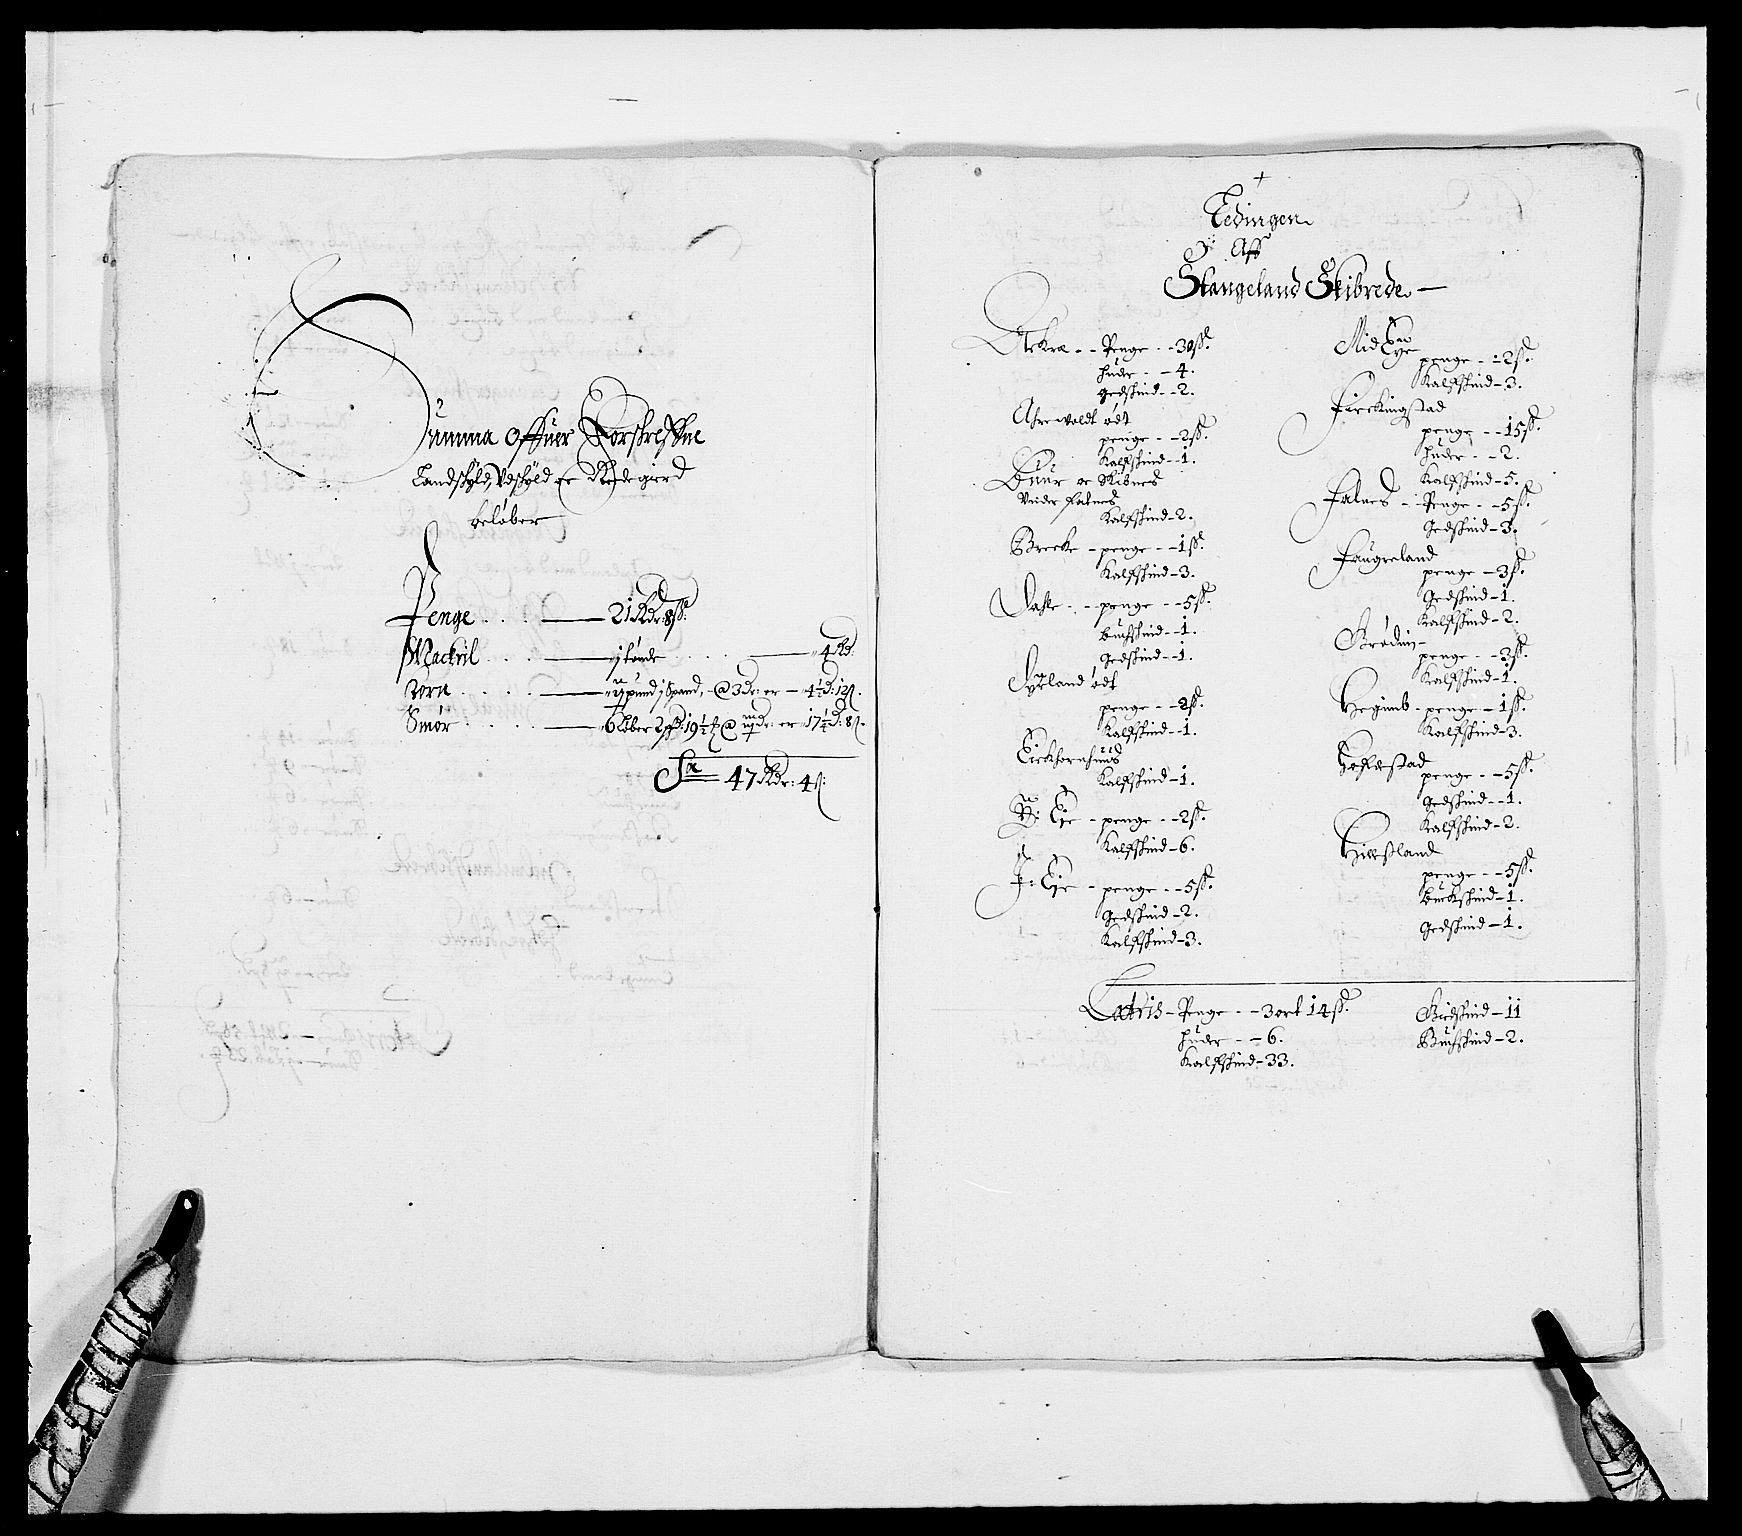 Summa Offuer Forskreffne
Landskyld, Vdskyld oc Redegierd
beløber
Penge .... — 21 Rdr: 8 ſß.
Mackril .... — j tønde .... — 4 Rd.
Korn .... — pund j Spand, @ 3 Dr: er — 4½ d: 12 ß.
Smør .... — 6 løber 2 pd: 19½ @ dr: er 17½ d: 8 ß.
Sa 47 Rdr: 4 ß:
+
Tedingen
Aff
Stangeland Skibrede —
Ackra - - Penge - - 30 ß.
huder - - 4.
gedskind - 2.
Ahrewoldt ødt
penge - - 2 ß.
Kalfskind - 1.
Buur oc Skibnes
Vnder falnes
Kalfskind - 2.
Brecke - penge - - 1 ß.
Kalfskind - 3.
Dahle - - penge - - 5 ß.
buchskind - 1.
gedskind - - 1.
Dyrland ødt
penge - - 2 ß.
Kalfskind - 1.
Eickhornsnds
Kalfskind - 1.
Y: Eje - penge - - 2 ß.
Kalfskind - 6.
J: Eje - penge - - 5 ß.
Gedskind - 2.
Kalfskind - 3.
Mid Eye
penge - - 2 ß.
Kalfskind - 3.
Firckingstad
penge - - 15 ß.
huder - - 2.
Kalfskind - 5.
Falnes - - Penge - - 5 ß.
Gedskind - 3.
Faugreland
penge - 3 ß.
Gedskind - 1.
Kalfskind - 2.
Grødem -
penge - - 3 ß.
Kalfskind - 1.
Heginb - penge - 1 ß.
Kalfskind - 3.
Hoflestad
penge - - 5 ß.
Gedskind - - 1.
Kalfskind - 2.
Hiresland
penge - - 5 ß.
buckskind - 1.
gedskind - 1.
Latris - Penge - - 3 ort 14 ß.
huder - - 6.
Kalfskind - 33.
Giedskind - 11
Buchskind - 2.